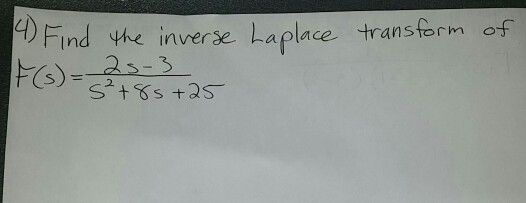 4) Find the inverse Laplace transform of
F(s) = 2s-3 / s²+8s+25